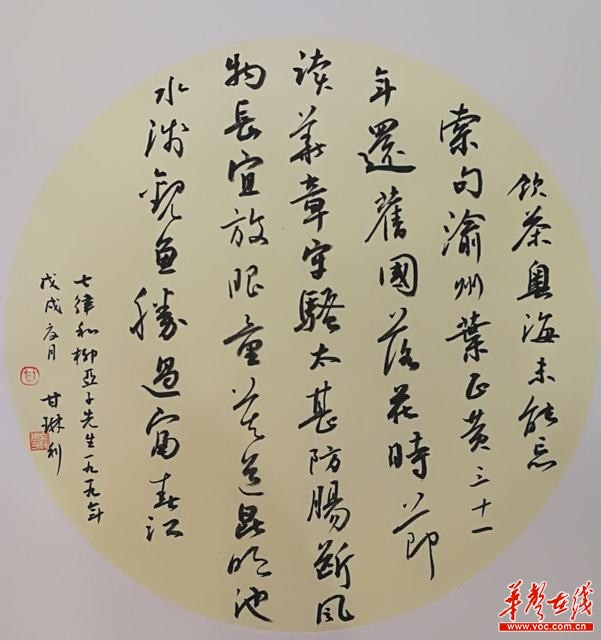 飲茶粵海未能忘
索句渝州葉正黃三十一
年還舊國落花時節
讀華章牢騷太甚防腸斷風
物長宜放眼量莫道昆明池
水淺觀魚勝過富春江
七律和柳亞子先生一九九年
戊戌夏月 甘琳利
甘
华声在线
www.voc.com.cn